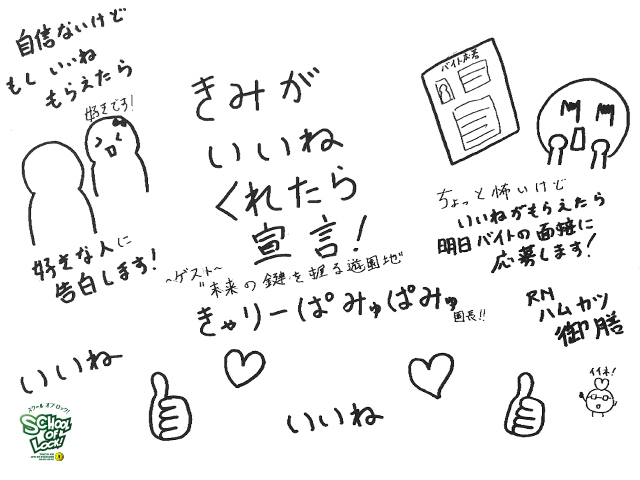 自信ないけど
もし いいね
もらえたら
好きです!
好きな人に
告白します!
きみが
いいね
くれたら
宣言!
〜ゲスト〜
"未来の鍵を握る遊園地"
きゃりーぱみゅぱみゅ
園長!!
バイト募集
ちょっと怖いけど
いいねがもらえたら
明日バイトの面接に
応募します!
RN
ハムカツ
御膳
いいね
いいね
イイネ!
スクール オブ ロック!
SCHOOL
OF
LOCK!